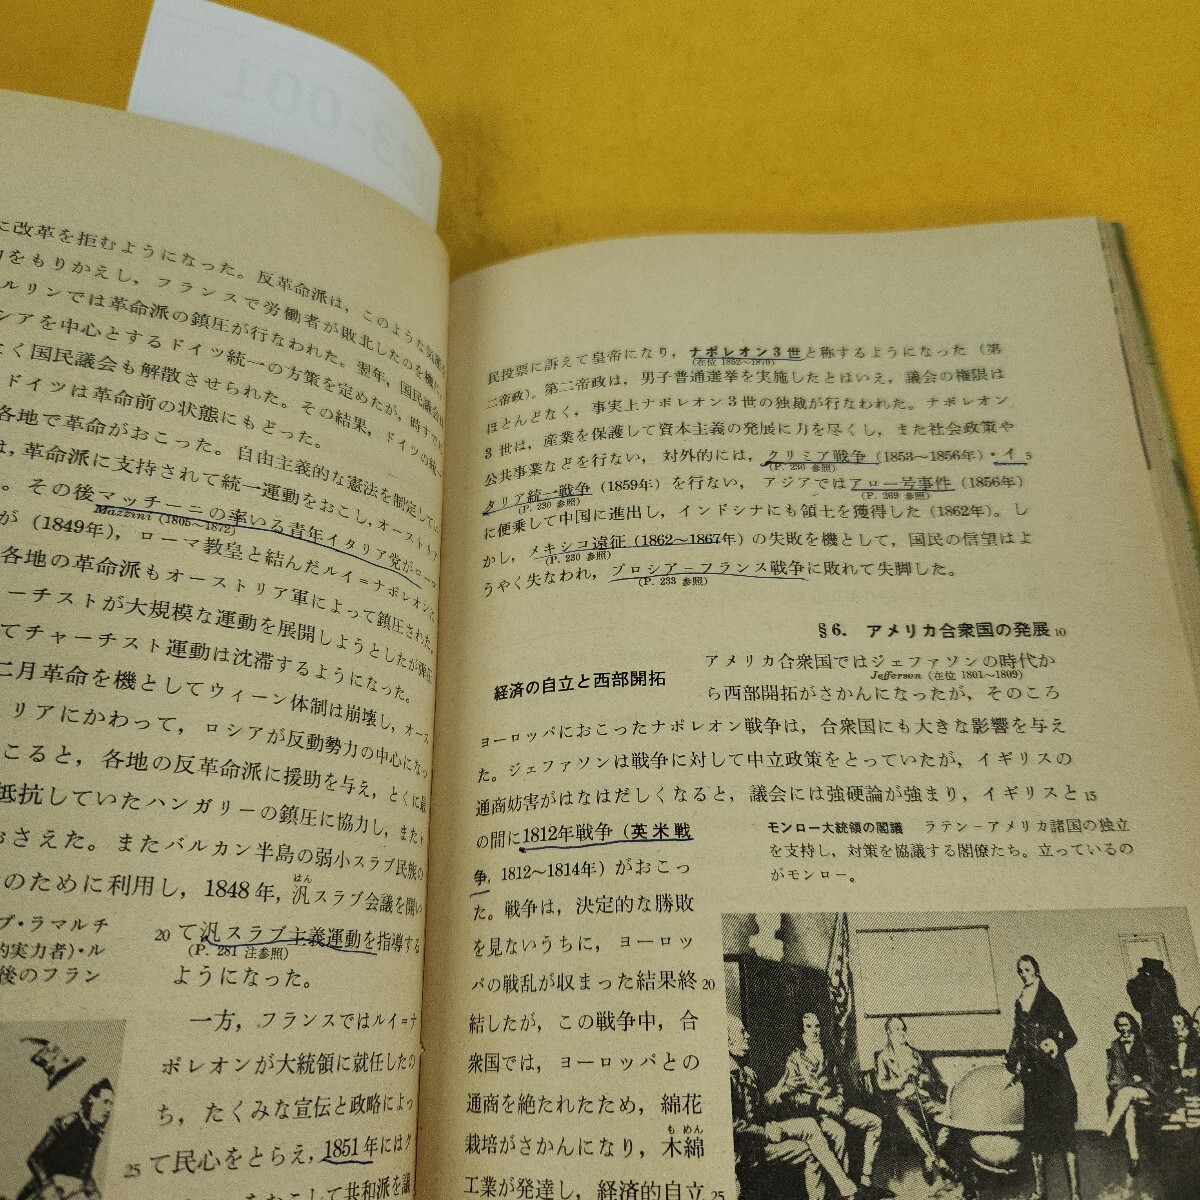 23-001
に改革を拒むようになった。反革命派は，このような気運
をもりかえし，フランスで労働者が敗北したのを機に，
ルリンでは革命派の鎮圧が行なわれた。翌年，国民議会
シアを中心とするドイツ統一の方策を定めたが，時すで
く国民議会も解散させられた。その結果，ドイツの統一
ドイツは革命前の状態にもどった。
各地で革命がおこった。自由主義的な憲法を制定して
は，革命派に支持されて統一運動をおこし，オーストリア
。その後マッチーニの率いる青年イタリア党がローマ
Mazzini (1805〜1872)
が（1849年），ローマ教皇と結んだルイ＝ナポレオンに
各地の革命派もオーストリア軍によって鎮圧された。
ーチストが大規模な運動を展開しようとしたが弾圧
てチャーチスト運動は沈滞するようになった。
二月革命を機としてウィーン体制は崩壊し，オース
リアにかわって，ロシアが反動勢力の中心になっ
こると，各地の反革命派に援助を与え，とくに最
抵抗していたハンガリーの鎮圧に協力し，また
おさえた。またバルカン半島の弱小スラブ民族の
のために利用し，1848年，汎スラブ会議を開い
はん
ブ・ラマルチ
的実力者）・ル
後のフラン
20 て汎スラブ主義運動を指導する
(P. 281 注参照)
ようになった。
一方，フランスではルイ＝ナ
ポレオンが大統領に就任したの
ち，たくみな宣伝と政略によっ
25 て民心をとらえ，1851年にはク
をおこして共和派を議
民投票に訴えて皇帝になり，ナポレオン3世と称するようになった（第
(在位 1852〜1870)
二帝政）。第二帝政は，男子普通選挙を実施したとはいえ，議会の権限は
ほとんどなく，事実上ナポレオン3世の独裁が行なわれた。ナポレオン
3世は，産業を保護して資本主義の発展に力を尽くし，また社会政策や
公共事業などを行ない，対外的には，クリミア戦争（1853〜1856年）・イ 5
(P. 236 参照)
タリア統一戦争（1859年）を行ない，アジアではアロー号事件（1856年）
(P. 230 参照)
(P. 269 参照)
に便乗して中国に進出し，インドシナにも領土を獲得した（1862年）。し
かし，メキシコ遠征（1862〜1867年）の失敗を機として，国民の信望はよ
(P. 230 参照)
うやく失なわれ，プロシア＝フランス戦争に敗れて失脚した。
(P. 233 参照)
§6. アメリカ合衆国の発展 10
経済の自立と西部開拓
アメリカ合衆国ではジェファソンの時代か
Jefferson (在位 1801〜1809)
ら西部開拓がさかんになったが，そのころ
ヨーロッパにおこったナポレオン戦争は，合衆国にも大きな影響を与え
た。ジェファソンは戦争に対して中立政策をとっていたが，イギリスの
通商妨害がはなはだしくなると，議会には強硬論が強まり，イギリスと 15
の間に1812年戦争（英米戦
争，1812〜1814年）がおこっ
た。戦争は，決定的な勝敗
を見ないうちに，ヨーロッ
パの戦乱が収まった結果終 20
結したが，この戦争中，合
衆国では，ヨーロッパとの
通商を絶たれたため，綿花
栽培がさかんになり，木綿
もめん
工業が発達し，経済的自立 25
モンロー大統領の閣議 ラテン－アメリカ諸国の独立
を支持し，対策を協議する閣僚たち。立っているの
がモンロー。